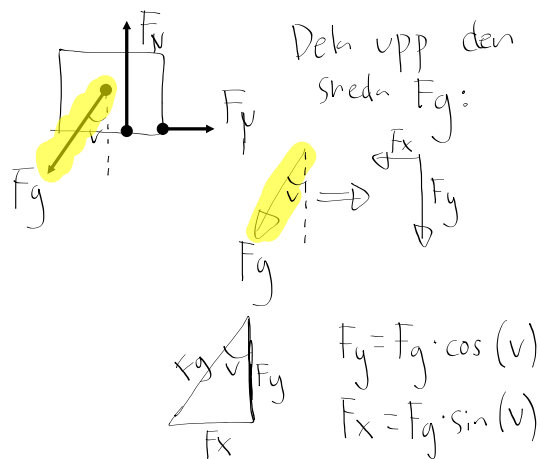 F_N
Dela upp den
sneda Fg:
F_μ
v
Fg
Fx
v
Fy
Fg
Fg
v
Fy
Fx
Fy = Fg · cos (v)
Fx = Fg · sin (v)